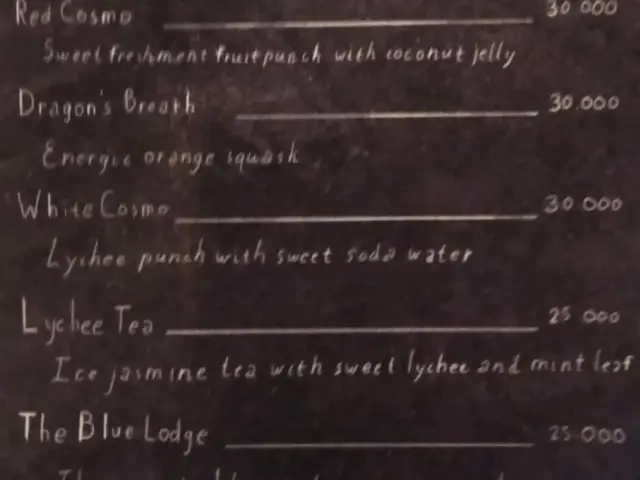 Red Cosmo 30.000
Sweet freshment fruitpunch with coconut jelly
Dragon's Breath 30.000
Energic orange squash
White Cosmo 30.000
Lychee punch with sweet soda water
Lychee Tea 25.000
Ice jasmine tea with sweet lychee and mint leaf
The Blue Lodge 25.000